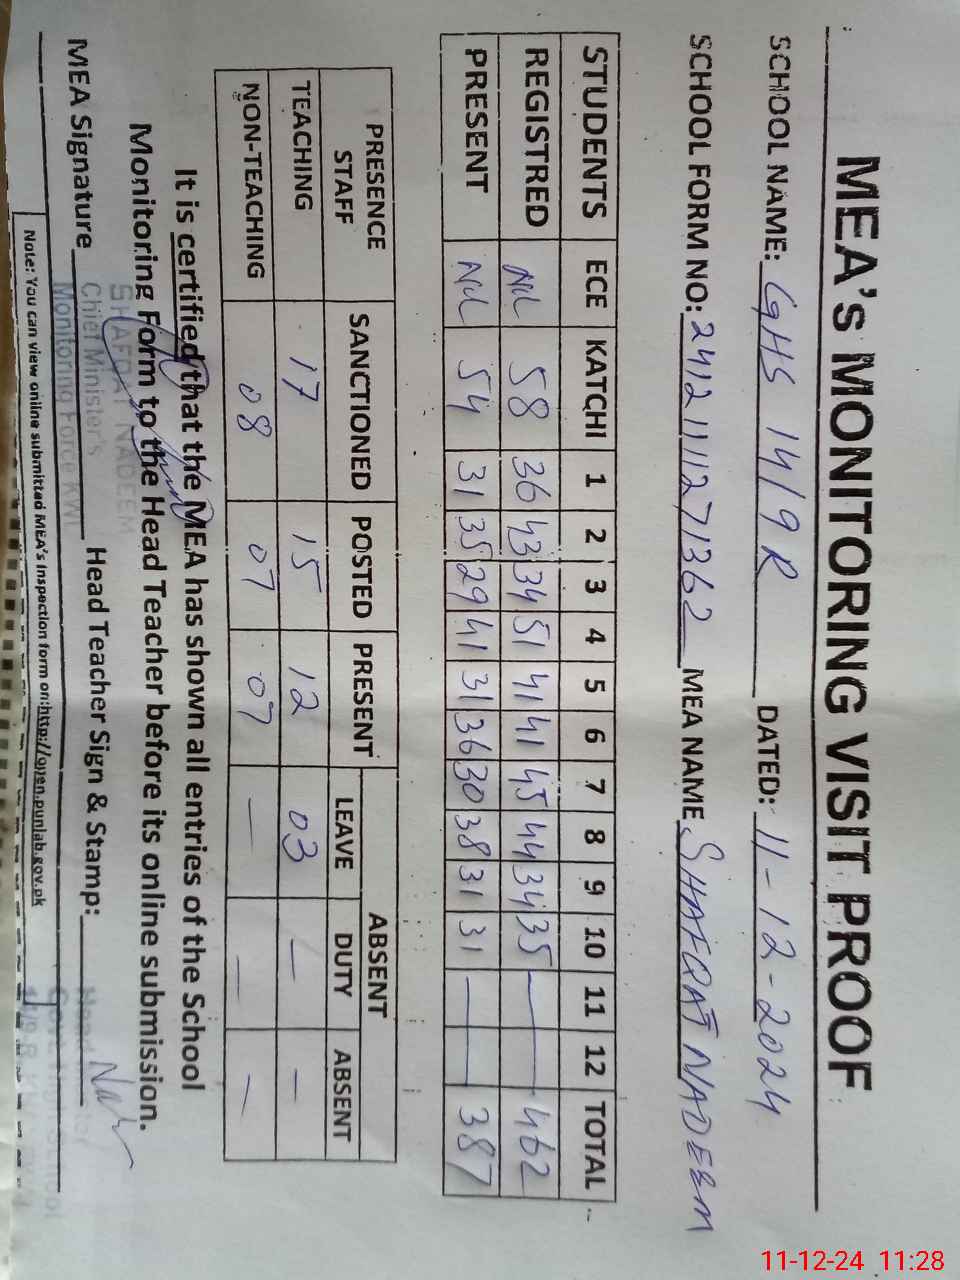 MEA's MONITORING VISIT PROOF
SCHOOL NAME: GHS 14/9 R DATED: 11-12-2024
SCHOOL FORM NO: 2412111271362 MEA NAME SHAFQAT NADEEM
STUDENTS ECE KATCHI 1 2 3 4 5 6 7 8 9 10 11 12 TOTAL
REGISTRED Nil 58 36 43 34 51 41 41 45 44 34 35 — 462
PRESENT Nil 54 31 35 29 41 31 36 30 38 31 31 — 387
PRESENCE STAFF SANCTIONED POSTED PRESENT ABSENT
LEAVE DUTY ABSENT
TEACHING 17 15 12 03 — —
NON-TEACHING 08 07 07 — — —
It is certified that the MEA has shown all entries of the School
Monitoring Form to the Head Teacher before its online submission.
SHAFQAT NADEEM
MEA Signature Chief Minister's Head Teacher Sign & Stamp:
Monitoring Force KWL
Note: You can view online submitted MEA's Inspection form on:http://open.punlab.gov.pk
11-12-24 11:28